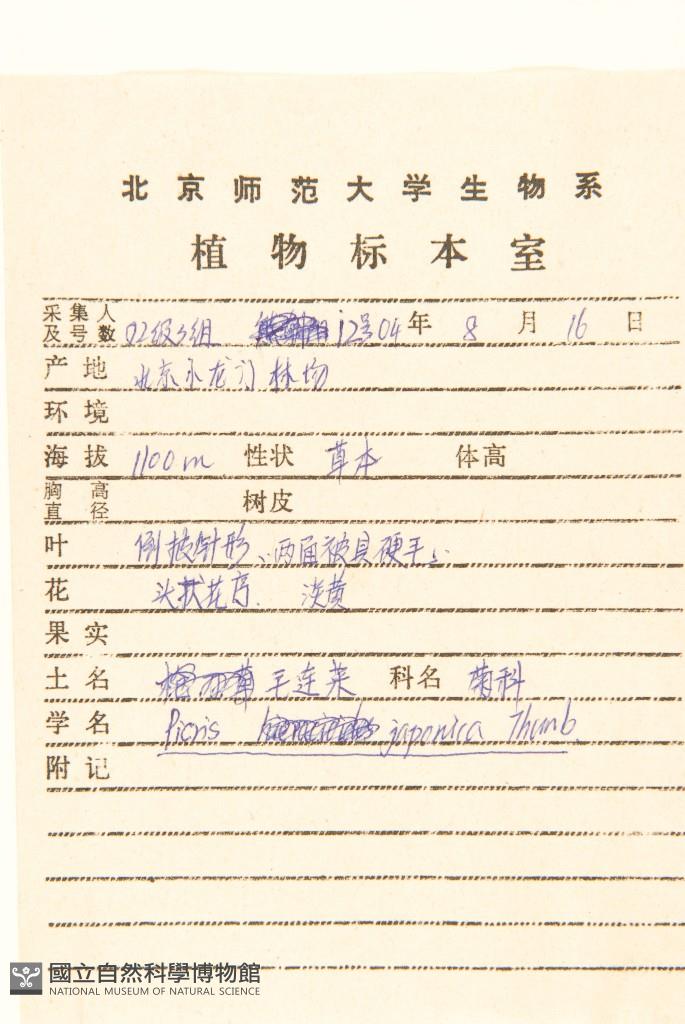 北京师范大学生物系
植物标本室
采集人及号数 02级3组 12号 04年 8月 16日
产地 北京小龙门林场
环境
海拔 1100m 性状 草本 体高
胸高直径 树皮
叶 倒披针形、两面被具硬毛
花 头状花序. 淡黄
果实
土名 毛连菜 科名 菊科
学名 Picris japonica Thunb.
附记
國立自然科學博物館
NATIONAL MUSEUM OF NATURAL SCIENCE